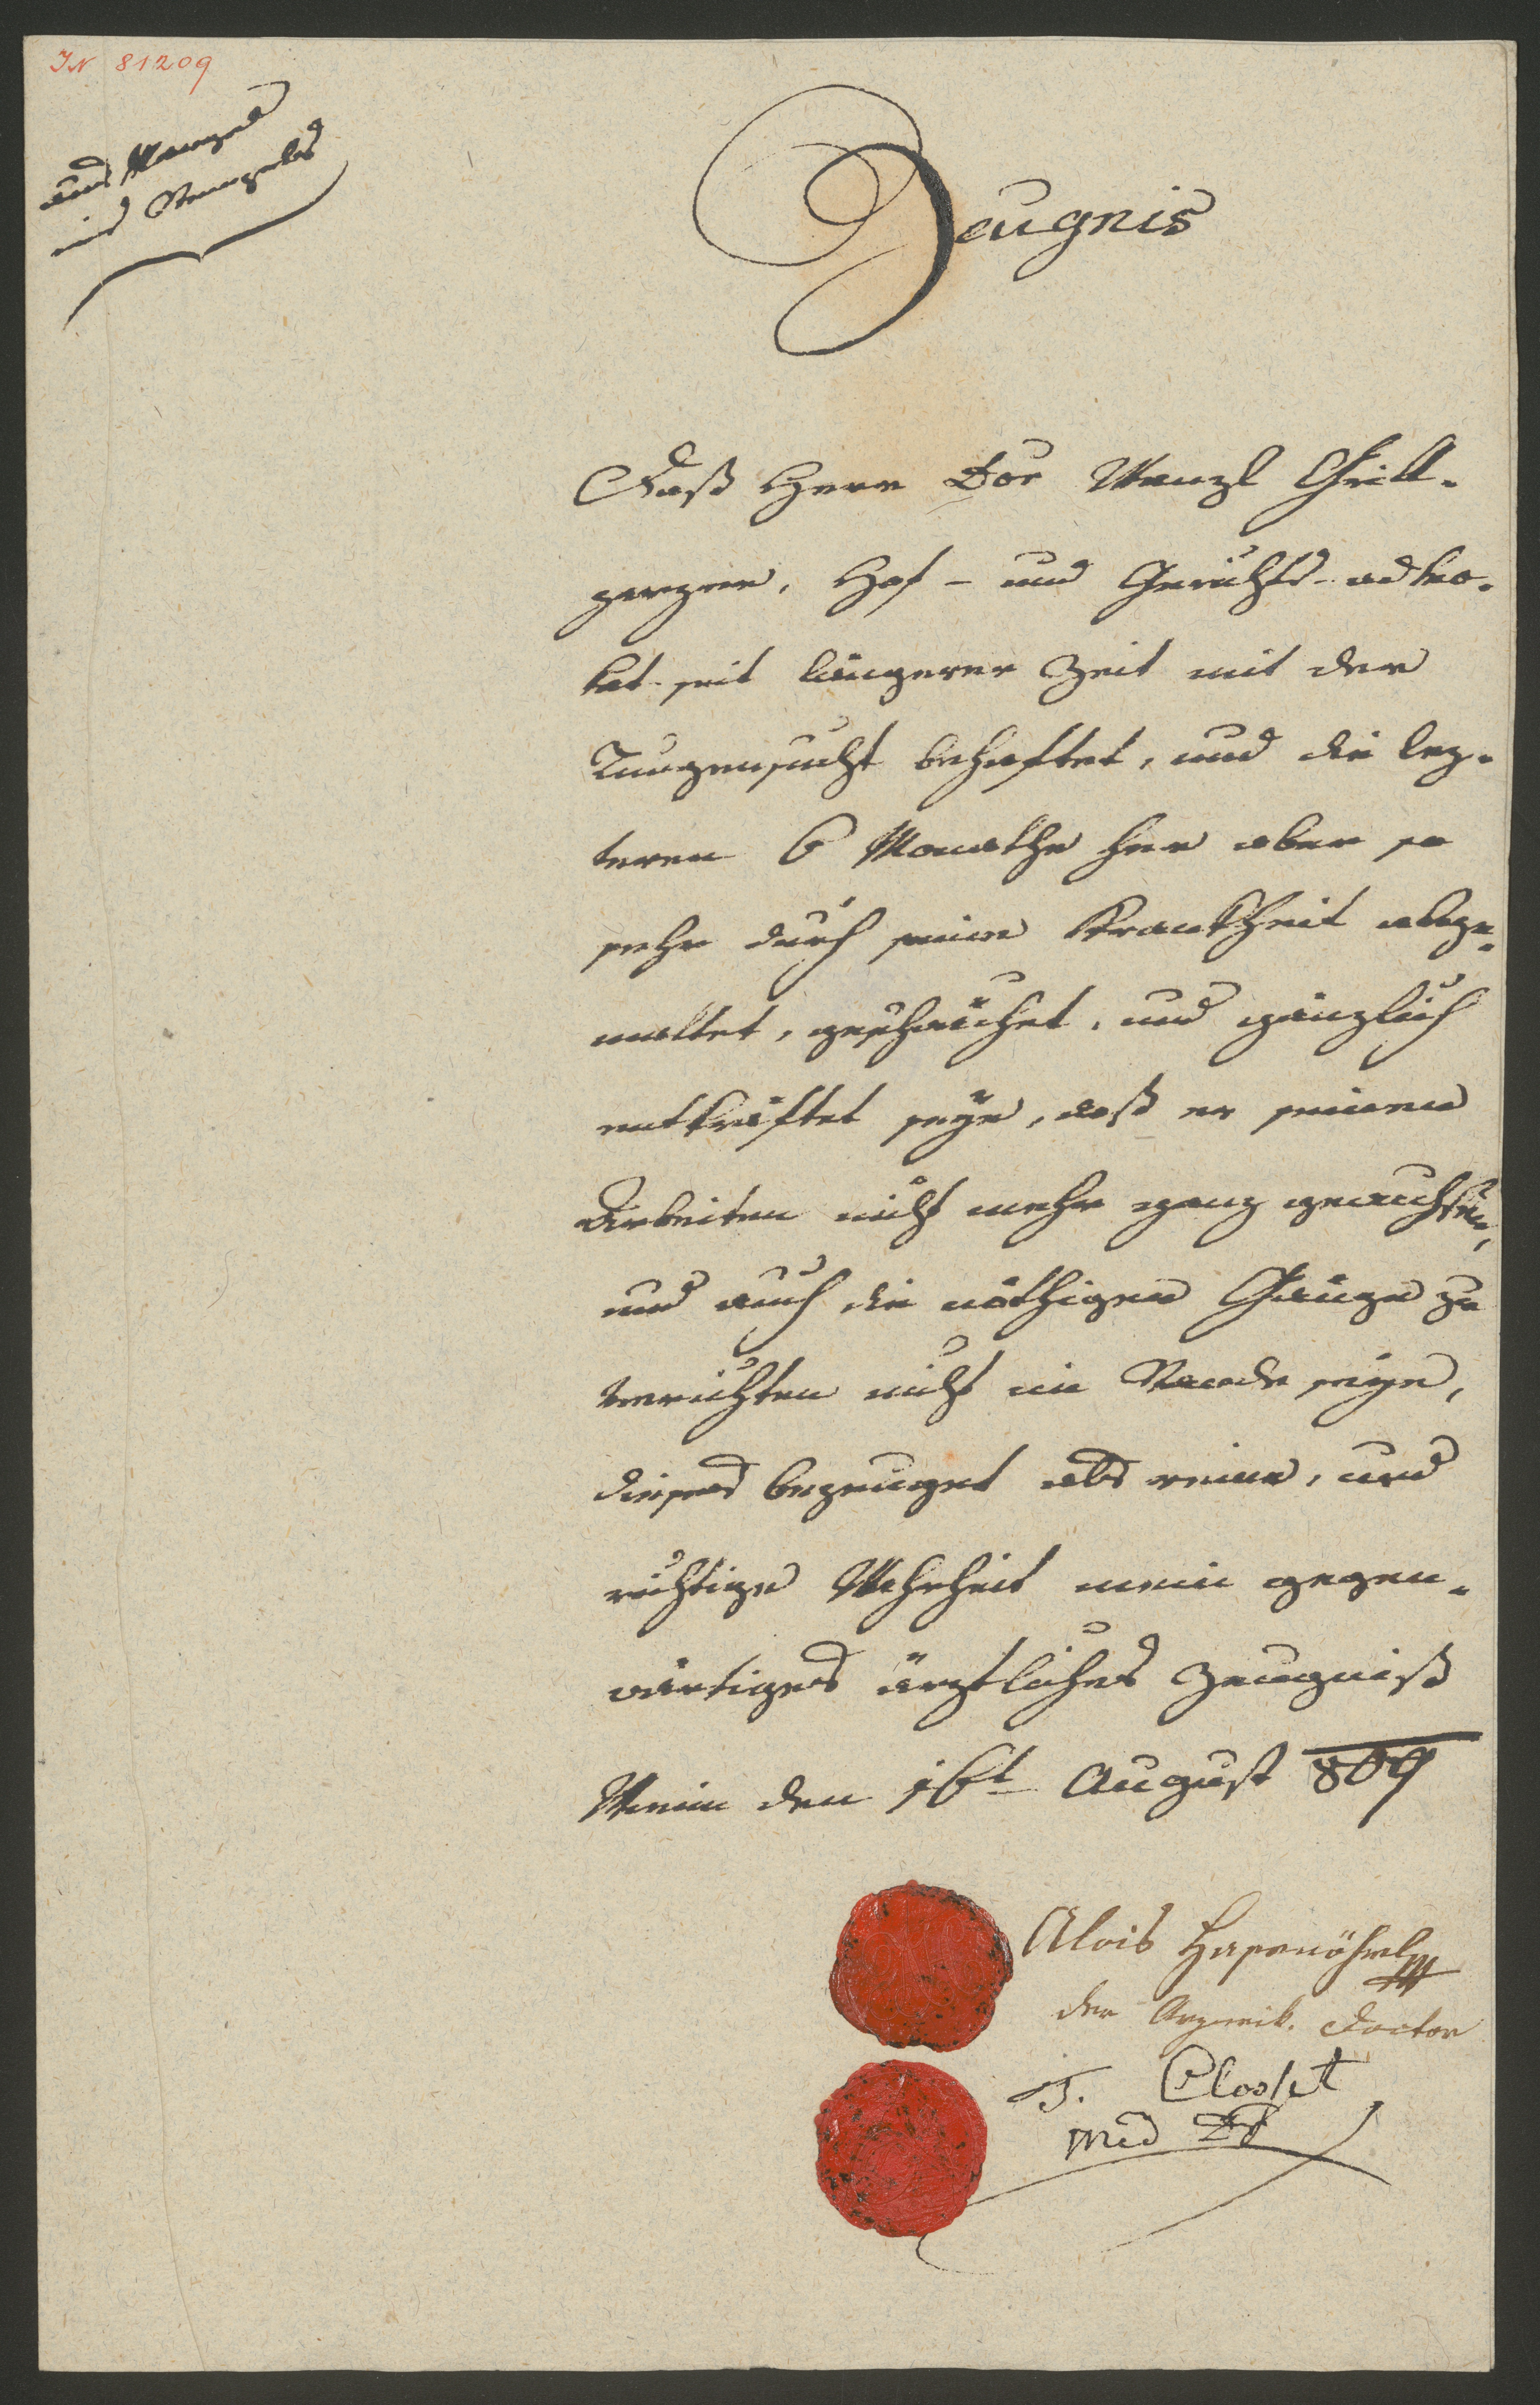 IN 81209
aus Mangel
eines Stempels
Zeugnis
Daß Herr Dor Wenzl Grill-
parzer, Hof- und Gerichts-advo-
kat seit längerer Zeit mit der
Lungensucht behaftet, und die lez-
teren 6 Monathe her aber so
sehr durch seine Krankheit abge-
mattet, geschwächet, und gänzlich
entkräftet seye, daß er seinen
Arbeiten nicht mehr ganz gewachsen,
und auch die nöthigen Gänge zu
verrichten nicht im Stande seye,
dieses bezeuget als reine, und
richtige Wahrheit mein gegen-
wärtiges ärztliches Zeugniß
Wienn den 16t August 809
Alois Hasenöhrl
der Arzneik. Doctor
T. Closset
Med Dr